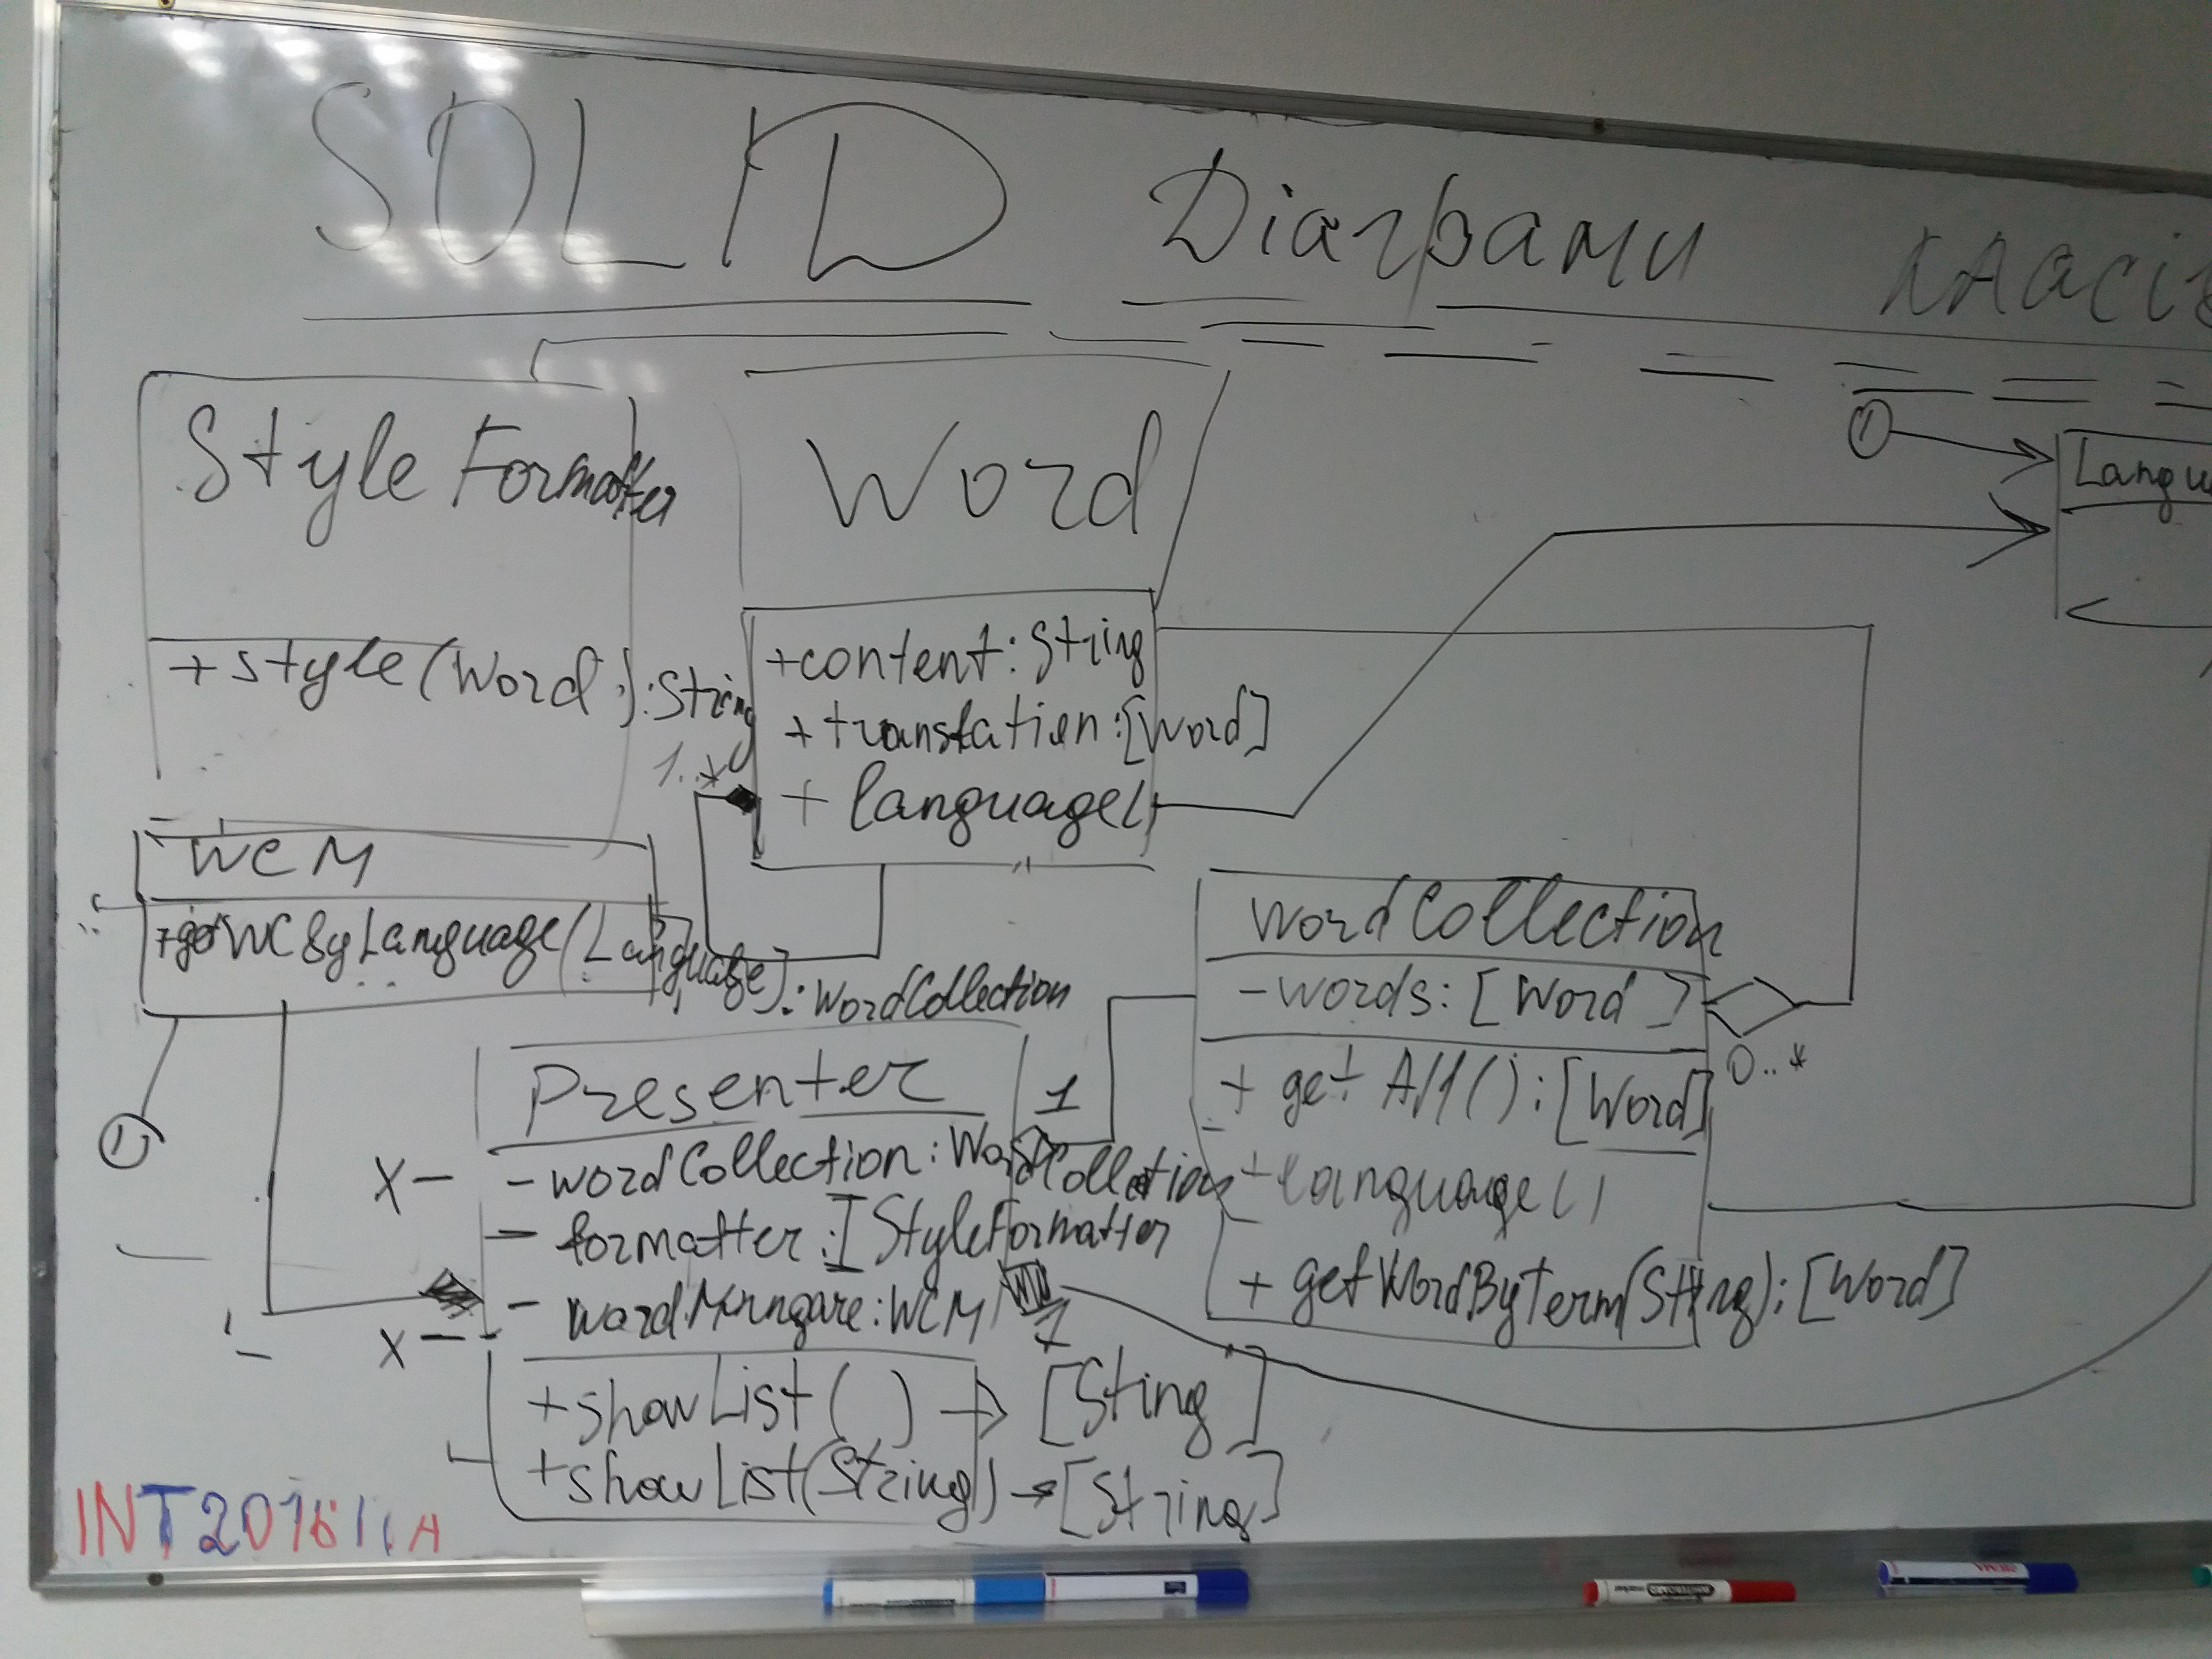 SOLID Діаграми класів
Style Formatter
+style(Word):String
Word
+content:String
+translation:[Word]
+language()
1..*
1
Langu
WCM
+getWCByLanguage(Language):WordCollection
1
WordCollection
-words:[Word]
0..*
+getAll():[Word]
+language()
+getWordByTerm(String):[Word]
Presenter
1
x-
-wordCollection:WordCollection
-formatter:IStyleFormatter
-
x-
1
+showList()→[Sting]
+showList(String)→[String]